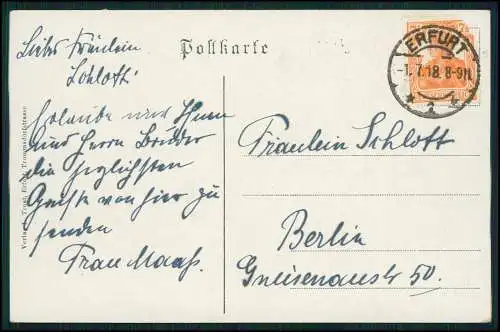 Postkarte
ERFURT
-1.7.18. 8-9 N.
Liebes Fräulein
Schlott!
Erlaube mir Ihnen
und Herrn Bruder
die herzlichsten
Grüße von hier zu
senden
Frau Maaß.
Fräulein Schlott
Berlin
Gneisenaustr 50.